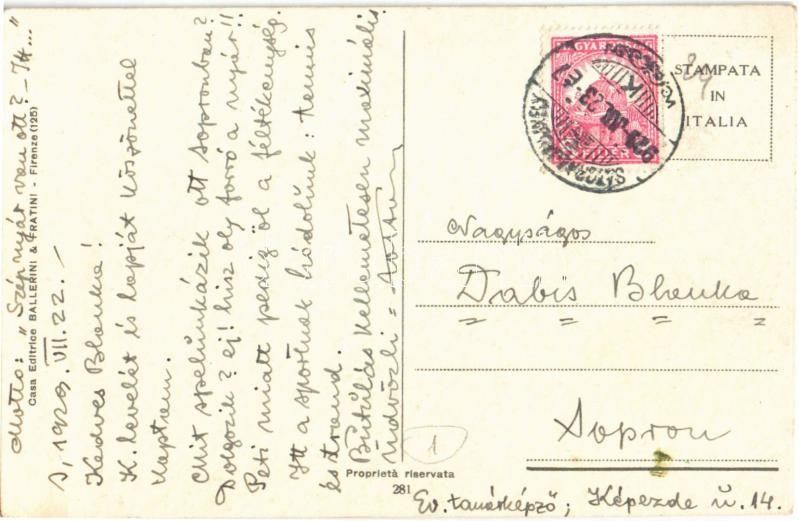 Motto: "Szép nyár van ott? – Itt..."
S, 1929. VII. 22. –
Kedves Blanka!
K. levelét és lapját köszönettel
kaptam.
Mit spelünkázik ott Sopronban?
Dolgozik? ej! hisz oly forró a nyár!!
Peti miatt pexig öl a féltékenység.
Itt a sportnak hódolunk: tennis
és strand.
Butulás kellemetesen maximális
üdvözli =
Casa Editrice BALLERINI & FRATINI - Firenze (125)
Proprietà riservata
281
1
STAMPATA
IN
ITALIA
MAGYAR
FILLÉR
929 VII 23
Nagyságos
Dabis Blanka
Sopron
Ev. tanárképző; Képezde u. 14.